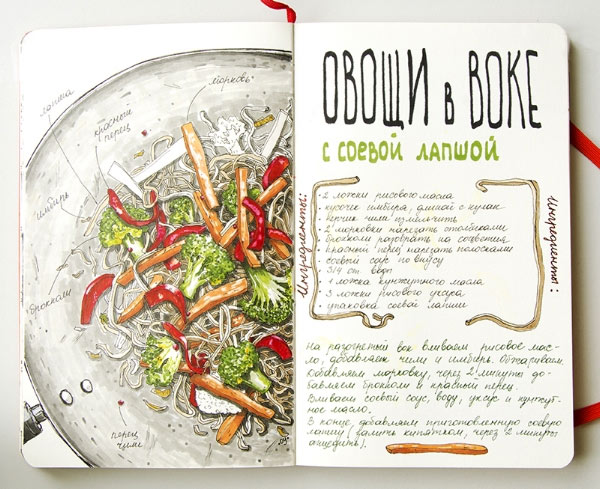 лапша
красный
перец
морковь
имбирь
брокколи
перец
чили
ОВОЩИ в ВОКЕ
С СОЕВОЙ ЛАПШОЙ
Ингредиенты:
• 2 ложки рисового масла
• кусочек имбиря, длиной с кулак
• перчик чили измельчить
• 2 морковки нарезать столбиками
• брокколи разорвать на соцветия
• красный перец нарезать полосками
• соевый соус по вкусу
• 3/4 ст. воды
• 1 ложка кунжутного масла
• 3 ложки рисового уксуса
• упаковка соевой лапши
Ингредиенты:
На разогретый вок вливаем рисовое мас-
ло, добавляем чили и имбирь. Обжариваем.
Добавляем морковку, через 2 минуты до-
бавляем брокколи и красный перец.
Вливаем соевый соус, воду, уксус и кунжут-
ное масло.
В конце добавляем приготовленную соевую
лапшу (залить кипятком, через 2 минуты
отцедить).